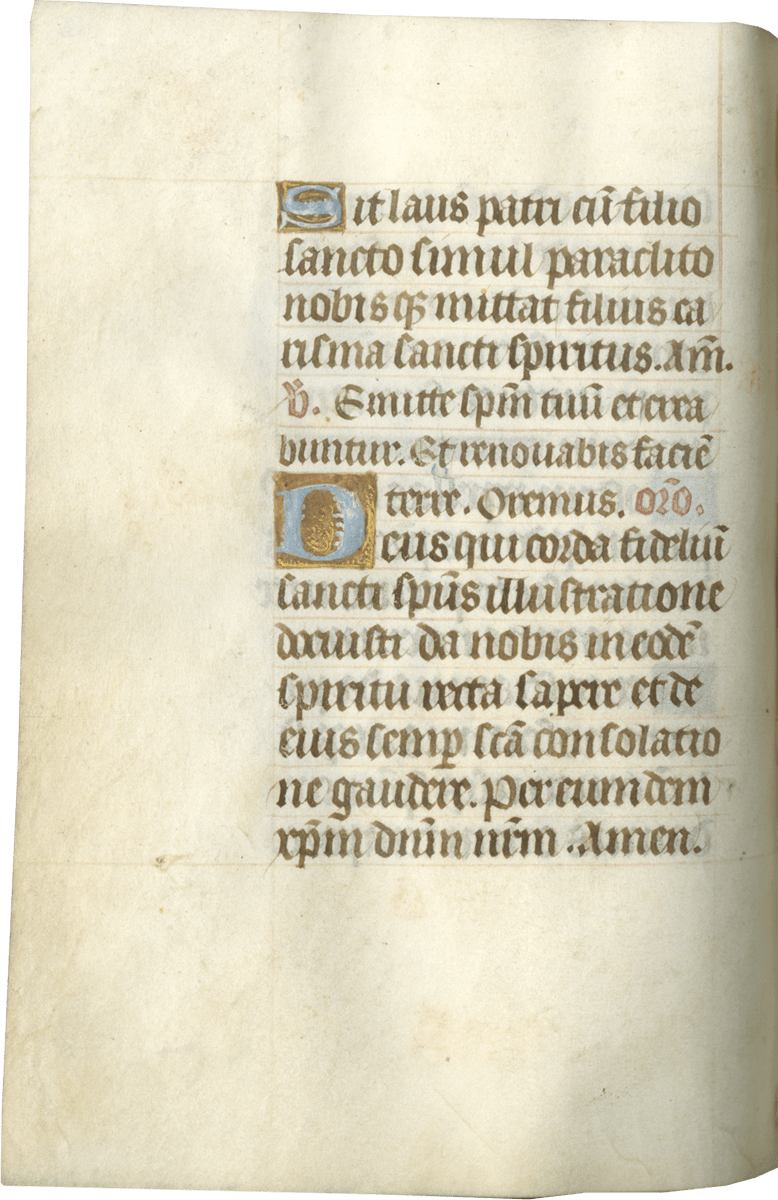 Sit laus patri cū filio
sancto simul paraclito
nobisqꝫ mittat filius ca
risma sancti spiritus. Am̄.
℣. Emitte sp̄m tuū et crea
buntur. Et renouabis faciē
terre. Oremus. or̄o.
Deus qui corda fideliū
sancti sp̄us illustratione
docuisti da nobis in eodē
spiritu recta sapere et de
eius semꝑ sc̄ā consolatio
ne gaudere. Per eumdem
xp̄m dn̄m nr̄m. Amen.